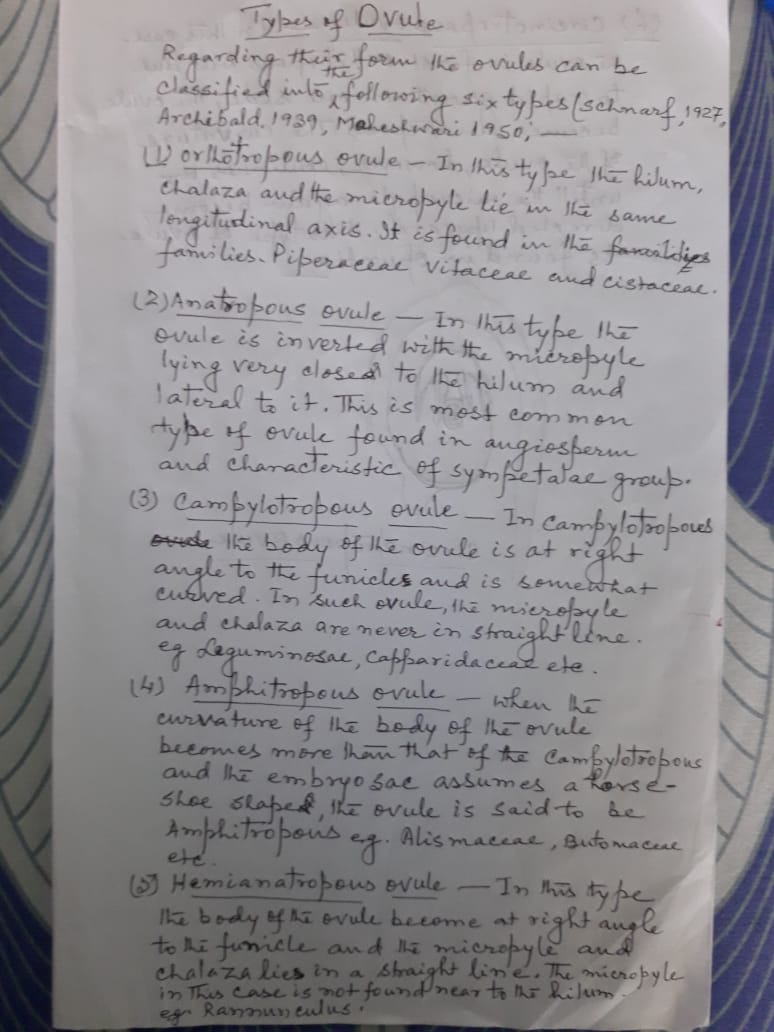 Types of Ovule
Regarding their form the ovules can be
classified into the following six types (schnarf, 1927,
Archibald, 1939, Maheshwari 1950; —
(1) orthotropous ovule — In this type the hilum,
Chalaza and the micropyle lie in the same
longitudinal axis. It is found in the
families. Piperaceae Vitaceae and cistaceae.
(2) Anatropous ovule — In this type the
ovule is inverted with the micropyle
lying very closed to the hilum and
lateral to it. This is most common
type of ovule found in angiosperm
and characteristic of sympetalae group.
(3) Campylotropous ovule — In campylotropous
ovule the body of the ovule is at right
angle to the funicles and is somewhat
curved. In such ovule, the micropyle
and chalaza are never in straight line.
eg Leguminosae, Capparidaceae etc.
(4) Amphitropous ovule — when the
curvature of the body of the ovule
becomes more than that of the Campylotropous
and the embryo sac assumes a horse-
shoe slaped, the ovule is said to be
Amphitropous eg. Alismaceae, Butomaceae
etc.
(5) Hemianatropous ovule — In this type
the body of the ovule become at right angle
to the funicle and the micropyle and
chalaza lies in a straight line. The micropyle
in this case is not found near to the hilum.
eg. Rannunculus.